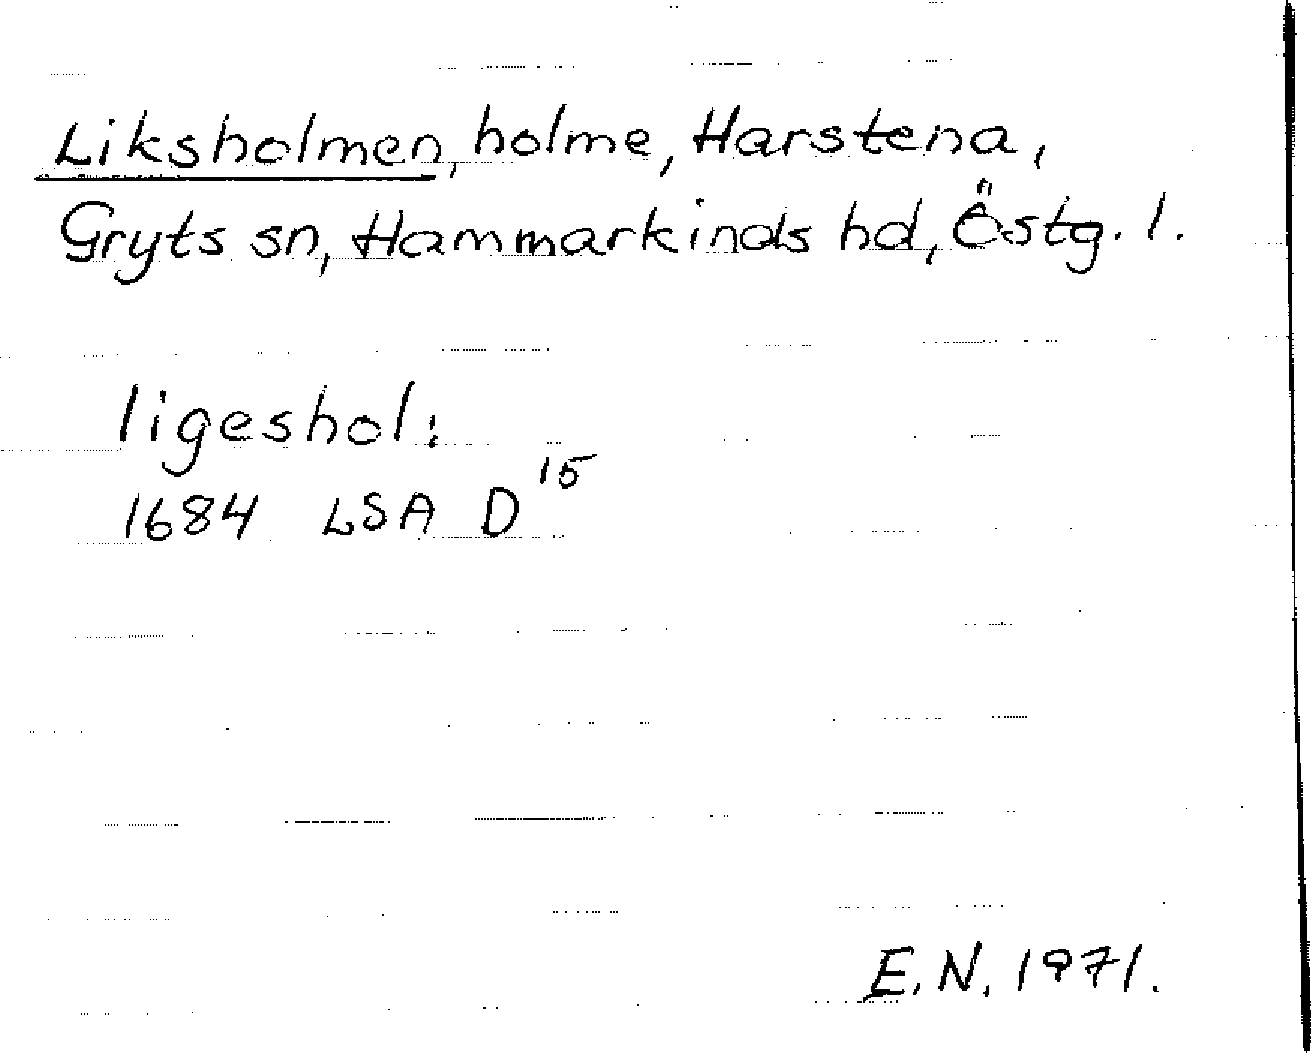 Liksholmen, holme, Harstena,
Gryts sn, Hammarkinds hd, Östg. l.
ligeshol:
1684 LSA D 15
E.N. 1971.